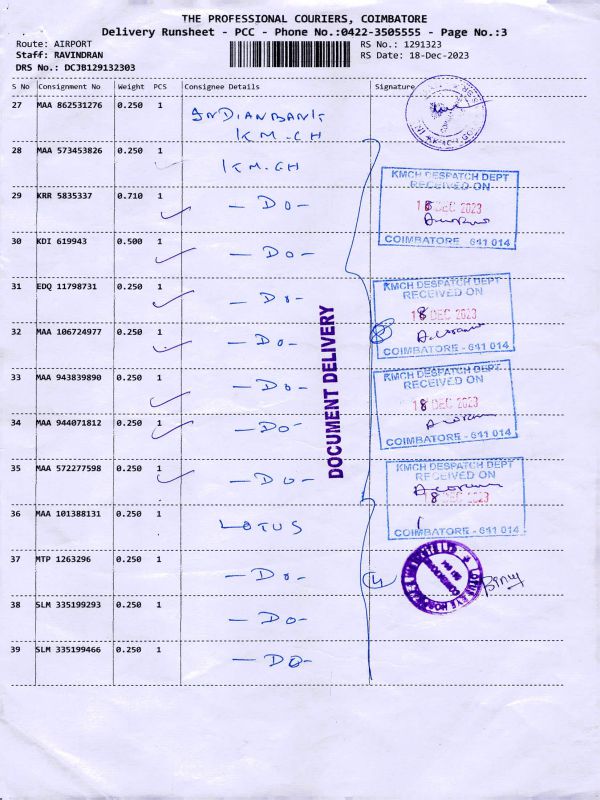 THE PROFESSIONAL COURIERS, COIMBATORE
Delivery Runsheet - PCC - Phone No.:0422-3505555 - Page No.:3
Route: AIRPORT
RS No.: 1291323
Staff: RAVINDRAN
RS Date: 18-Dec-2023
DRS No.: DCJB129132303
S No Consignment No Weight PCS Consignee Details Signature
27 MAA 862531276 0.250 1 INDIANBANK
KM-CH
28 MAA 573453826 0.250 1 KM-CH
KMCH DESPATCH DEPT
RECEIVED ON
18 DEC 2023
COIMBATORE - 641 014
29 KRR 5835337 0.710 1 - DO -
30 KDI 619943 0.500 1 - DO -
31 EDQ 11798731 0.250 1 - DO -
KMCH DESPATCH DEPT
RECEIVED ON
18 DEC 2023
COIMBATORE - 641 014
32 MAA 106724977 0.250 1 - DO -
8
33 MAA 943839890 0.250 1 - DO -
KMCH DESPATCH DEPT
RECEIVED ON
18 DEC 2023
COIMBATORE - 641 014
34 MAA 944071812 0.250 1 - DO -
DOCUMENT DELIVERY
35 MAA 572277598 0.250 1 - DO -
KMCH DESPATCH DEPT
RECEIVED ON
18 DEC 2023
COIMBATORE - 641 014
36 MAA 101388131 0.250 1 LOTUS
37 MTP 1263296 0.250 1 - DO -
4
38 SLM 335199293 0.250 1 - DO -
39 SLM 335199466 0.250 1 - DO -